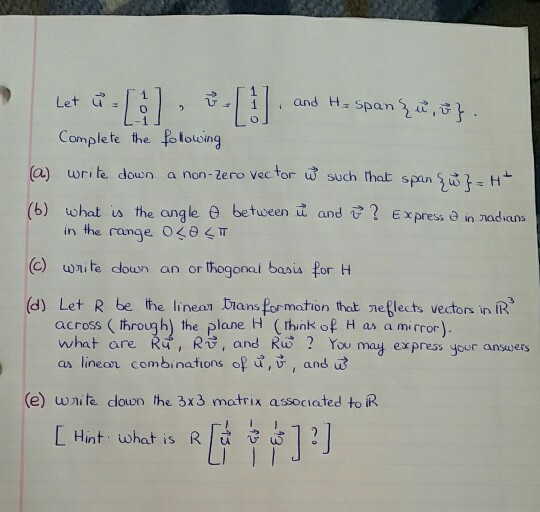 Let u⃗ = [1 0 -1], v⃗ = [1 1 0], and H = span {u⃗, v⃗}.
Complete the following
(a) write down a non-zero vector w⃗ such that span {w⃗} = H⊥
(b) what is the angle θ between u⃗ and v⃗? Express θ in radians
in the range 0≤θ≤π
(c) write down an orthogonal basis for H
(d) Let R be the linear transformation that reflects vectors in ℝ³
across (through) the plane H (think of H as a mirror).
what are Ru⃗, Rv⃗, and Rw⃗? You may express your answers
as linear combinations of u⃗, v⃗, and w⃗
(e) write down the 3x3 matrix associated to ℝ
[Hint: what is R [u⃗ v⃗ w⃗]?]